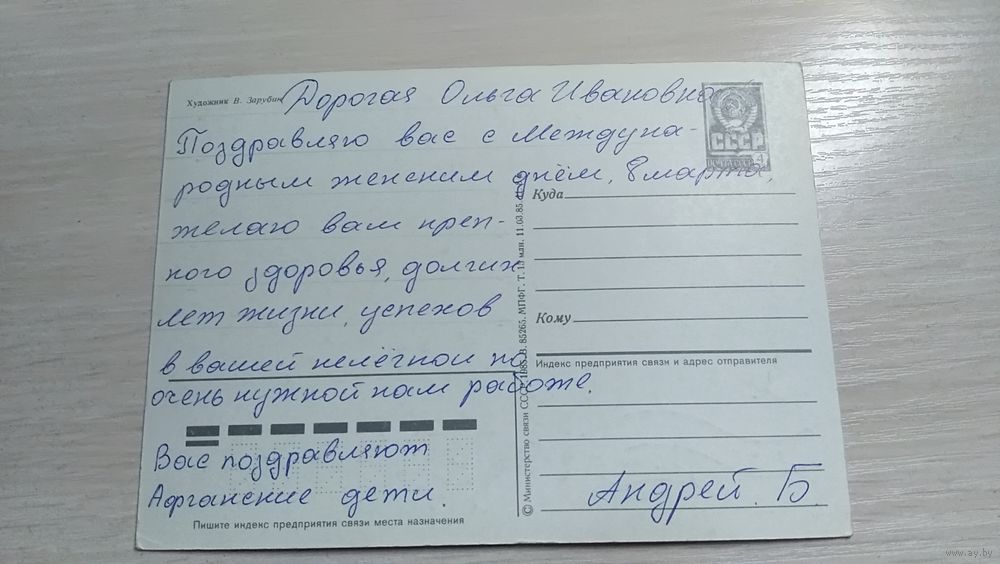 Художник В. Зарубин
Дорогая Ольга Ивановна
Поздравляю вас с Междуна-
родным женским днём, 8 марта,
желаю вам креп-
кого здоровья, долгих
лет жизни, успехов
в вашей нелёгкой но
очень нужной нам работе.
Вас поздравляют
Афганские дети.
Пишите индекс предприятия связи места назначения
СССР
ПОЧТА СССР 4
Куда
Кому
Индекс предприятия связи и адрес отправителя
Андрей. Б.
© Министерство связи СССР. 1985. З. 85265. МПФГ. Т. 13 млн. 11.03.85
www.ay.by